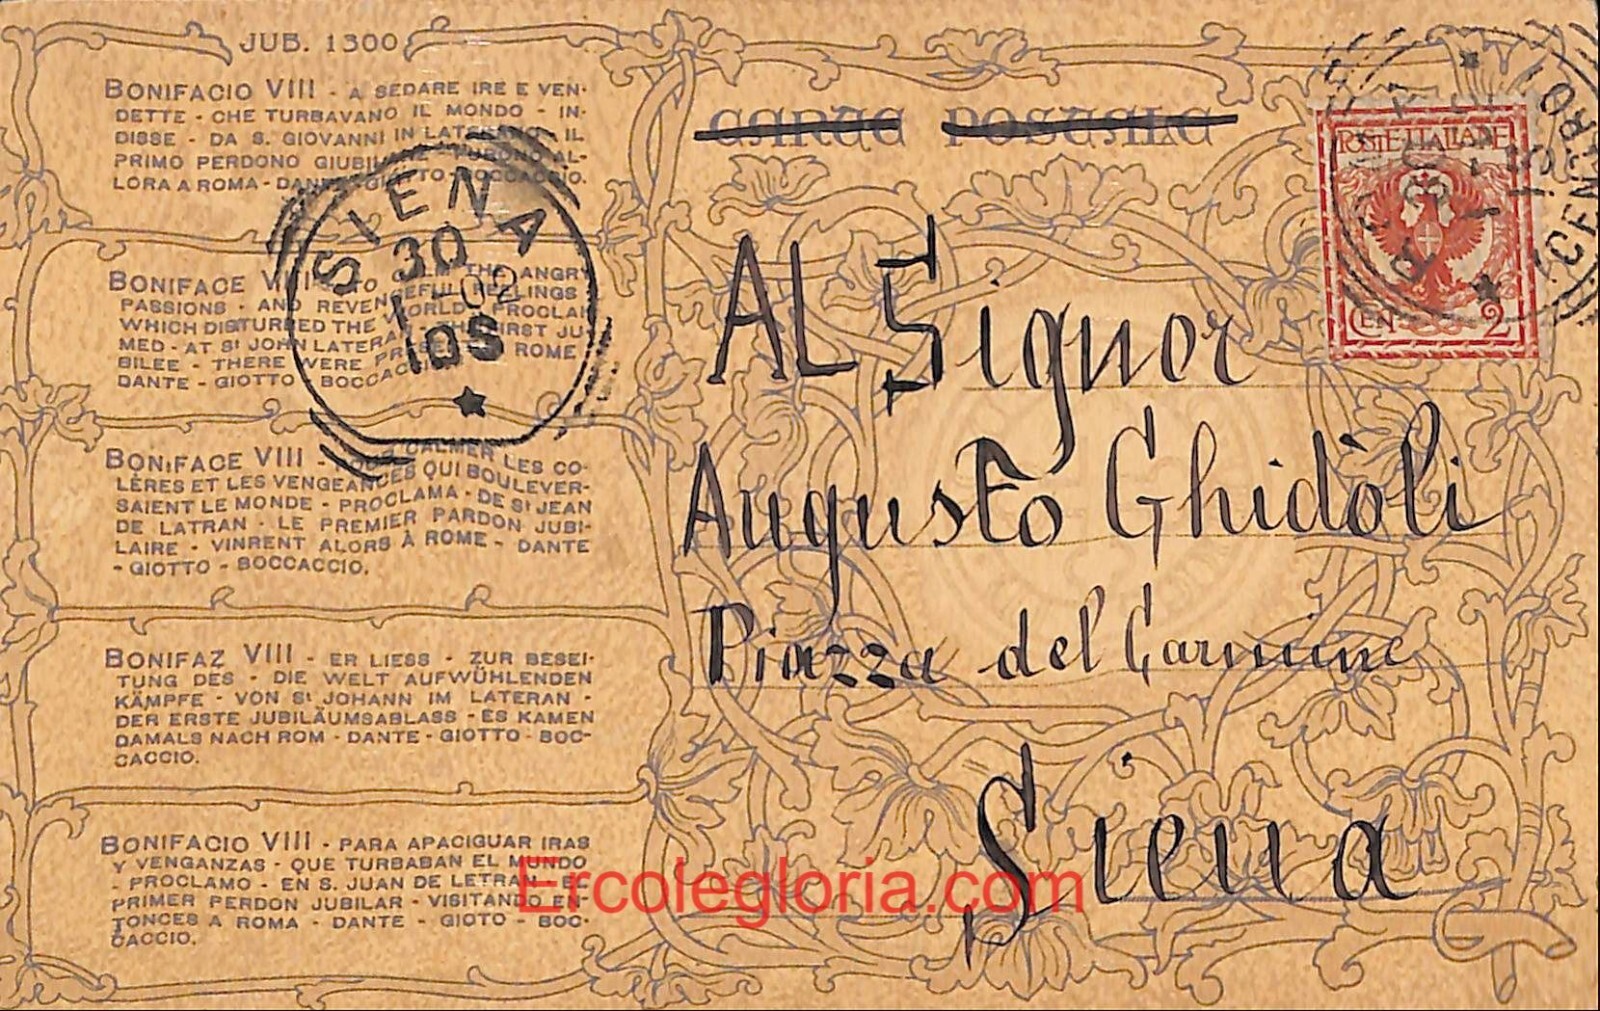 JUB. 1300
BONIFACIO VIII - A SEDARE IRE E VEN-
DETTE - CHE TURBAVANO IL MONDO - IN-
DISSE - DA S. GIOVANNI IN LATERANO - IL
PRIMO PERDONO GIUBILARE - FURONO AL-
LORA A ROMA - DANTE - GIOTTO - BOCCACCIO.
BONIFACE VIII - TO CALM THE ANGRY
PASSIONS - AND REVENGEFUL FEELINGS
WHICH DISTURBED THE WORLD - PROCLAI-
MED - AT St JOHN LATERAN - THE FIRST JU-
BILEE - THERE WERE PRESENT ROME
DANTE - GIOTTO - BOCCACCIO
BONIFACE VIII - POUR CALMER LES CO-
LÈRES ET LES VENGEANCES QUI BOULEVER-
SAIENT LE MONDE - PROCLAMA - DE St JEAN
DE LATRAN - LE PREMIER PARDON JUBI-
LAIRE - VINRENT ALORS À ROME - DANTE
- GIOTTO - BOCCACCIO.
BONIFAZ VIII - ER LIESS - ZUR BESEI-
TUNG DES - DIE WELT AUFWÜHLENDEN
KÄMPFE - VON St JOHANN IM LATERAN -
DER ERSTE JUBILÄUMSABLASS - ES KAMEN
DAMALS NACH ROM - DANTE - GIOTTO - BOC-
CACCIO.
BONIFACIO VIII - PARA APACIGUAR IRAS
Y VENGANZAS - QUE TURBABAN EL MUNDO
- PROCLAMO - EN S. JUAN DE LETRAN - EL
PRIMER PERDON JUBILAR - VISITANDO EN-
TONCES A ROMA - DANTE - GIOTO - BOC-
CACCIO.
SIENA
30
1-02
10S
CARTE POSTALE
POSTE ITALIANE
CEN 2
CENTRO
Al Signor
Augusto Ghidòli
Piazza del Carmine
Siena
Ercolegloria.com